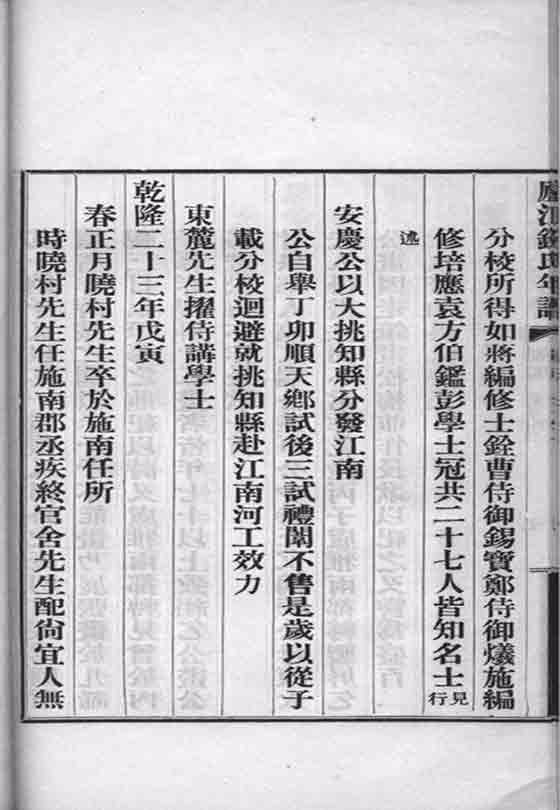 廬江錢氏年譜
分校所得如蔣編修士銓曹侍御錫寶鄭侍御爔施編
修培應袁方伯鑑彭學士冠共二十七人皆知名士見行
述
安慶公以大挑知縣分發江南
公自舉丁卯順天鄉試後三試禮闈不售是歲以從子
載分校迴避就挑知縣赴江南河工效力
東麓先生擢侍講學士
乾隆二十三年戊寅
春正月曉村先生卒於施南任所
時曉村先生任施南郡丞疾終官舍先生配尙宜人無